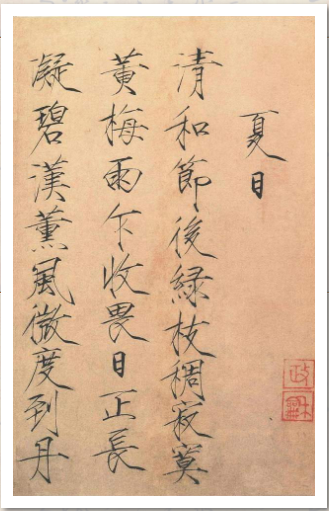 夏日
清和節後綠枝稠寂莫
黃梅雨乍收畏日正長
凝碧漢薰風微度到丹
政和